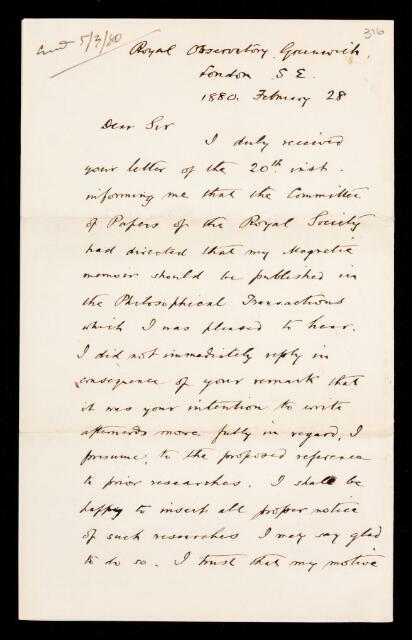 5/3/80
316
Royal Observatory, Greenwich,
London S E.
1880. February 28
Dear Sir
I duly received
your letter of the 20th inst.
informing me that the Committee
of Papers of the Royal Society
had directed that my Magnetic
memoir should be published in
the Philosophical Transactions
which I was pleased to hear.
I did not immediately reply in
consequence of your remark that
it was your intention to write
afterwards more fully in regard, I
presume, to the proposed reference
to prior researches. I shall be
happy to insert all proper notice
of such researches I may say glad
to do so. I trust that my motive